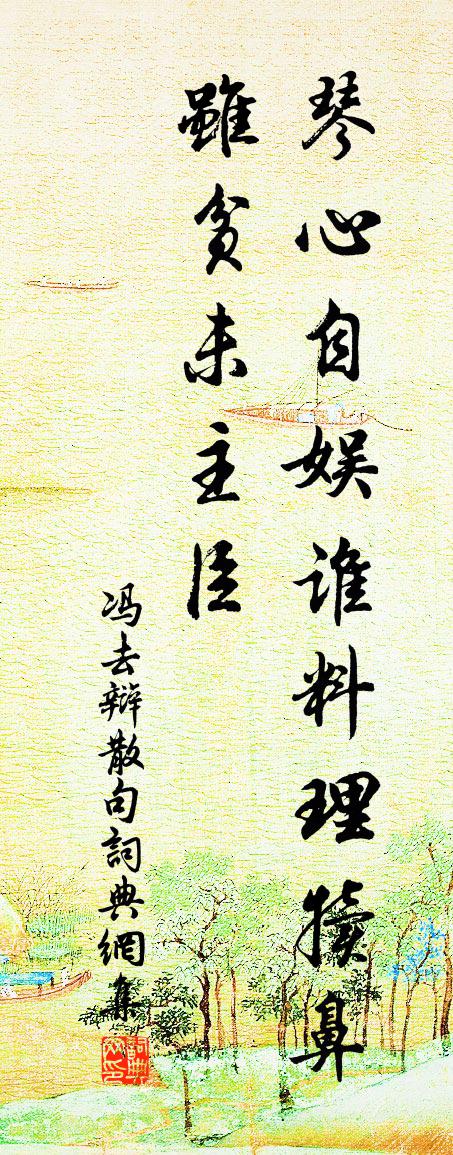 琴心自娱谁料理犊鼻
雖貧未主臣
冯去辩散句詞典網集